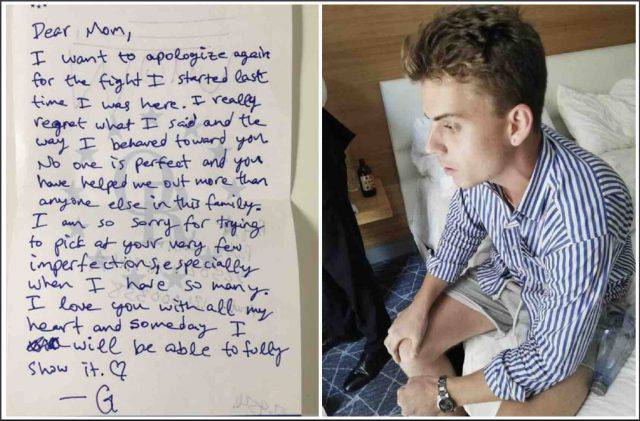 Dear Mom,
I want to apologize again
for the fight I started last
time I was here. I really
regret what I said and the
way I behaved toward you.
No one is perfect and you
have helped me out more than
anyone else in this family.
I am so sorry for trying
to pick at your very few
imperfections, especially
when I have so many.
I love you with all my
heart and someday I
will be able to fully
show it. ♡
— G